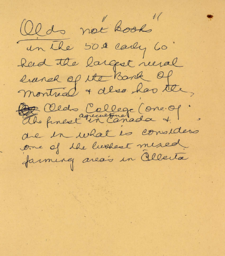 Olds not "books"
in the 50s early 60
had the largest rural
branch of the Bank Of
Montreal & also has the
Olds College (one of
agricultural
the finest in Canada &
are in what is considers
one of the lushest mixed
farming areas in Alberta